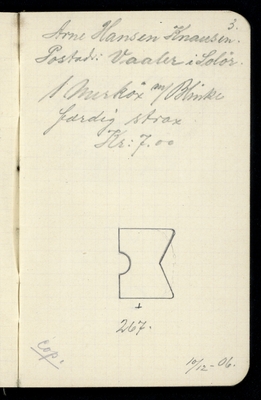 3.
Arne Hansen Knausen.
Postadr: Vaaler i Solör.
1 Merköx m/Blinke
færdig strax
Kr: 7.00
267.
Cop.
10/12-06.